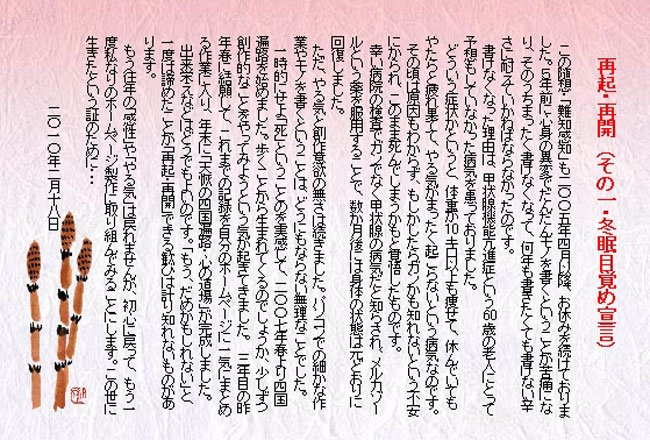 再起・再開 （その一・冬眠目覚め宣言）
この随想・「難知感知」も二〇〇五年四月以降、お休みを続けておりま
した。５年前に心身の異変でだんだんモノを書くということが苦痛にな
り、そのうちまったく書けなくなって、何年も書きたくても書けない辛
さに耐えていかねばならなかったのです。
書けなくなった理由は、甲状腺機能亢進症という60歳の老人にとって
予想だもしていなかった病気を患っておりました。
どういう症状かというと、体重が10キロ以上も痩せて、休んでいても
やたらと疲れ果てて、やる気がまったく起こらないという病気なのです。
その頃は原因もわからず、もしかしたらガンかも知れないという不安
にかられ、このまま死んでしまうかもと覚悟したものです。
幸い病院の検査でガンでなく、甲状腺の病気だと知らされ、メルカゾー
ルという薬を服用することで、数か月後には身体の状態は元どおりに
回復しました。
ただ、やる気と創作意欲の無さは続きました。パソコンでの細かな作
業やモノを書くということは、どうにもならない無理なことでした。
一時的にせよ「死」ということのを実感して、二〇〇七年春より四国
遍路を始めました。歩くことから生まれてくるのでしょうか、少しずつ
創作的なことをやってみようという気が起きてきました。三年目の昨
年春に結願して、これまでの記録を自分のホームページに一気にまとめ
る作業に入り、年末に「天恢の四国遍路・心の道場」が完成しました。
出来栄えなどはどうでもよいのです。「もう、だめかもしれない」と、
一度は諦めたことが「再起・再開」できる歓びは計り知れないものがあ
ります。
もう往年の「感性」や「やる気」は戻れませんが、初心に戻って、もう一
度私なりのホームページ製作に取り組んでみることにします。この世に
生きたという証のために・・・
二〇一〇年二月十八日